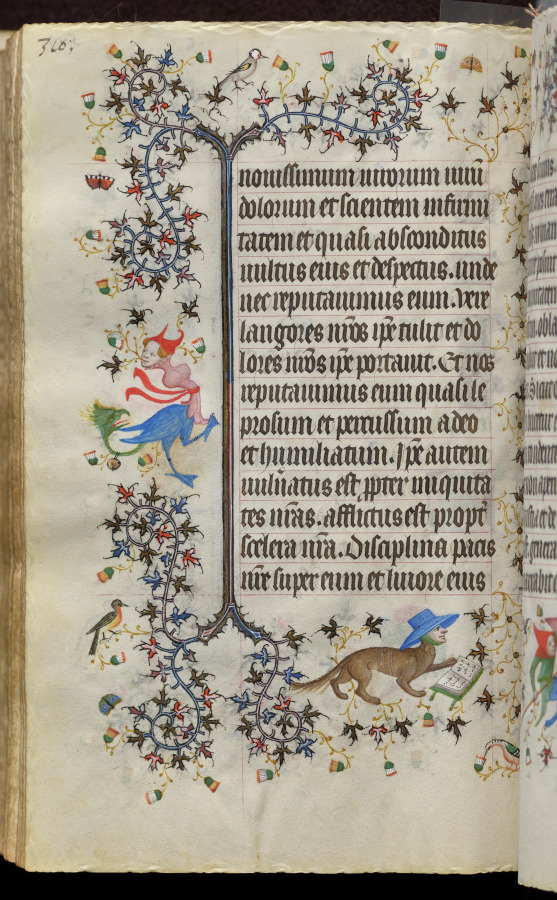 316
nouissimum uirorum uirū
dolorum et scientem infirmi
tatem et quasi absconditus
uultus eius et despectus. unde
nec reputauimus eum. Vere
langores nr̄os ip̄e tulit et do
lores nr̄os ip̄e portauit. Et nos
reputauimus eum quasi le
prosum et percussum a deo
et humiliatum. Ip̄e autem
uuln̄atus est ꝓpter iniquita
tes nr̄as. afflictus est propt̄
scelera nr̄a. Disciplina pacis
nr̄e super eum et liuore eius